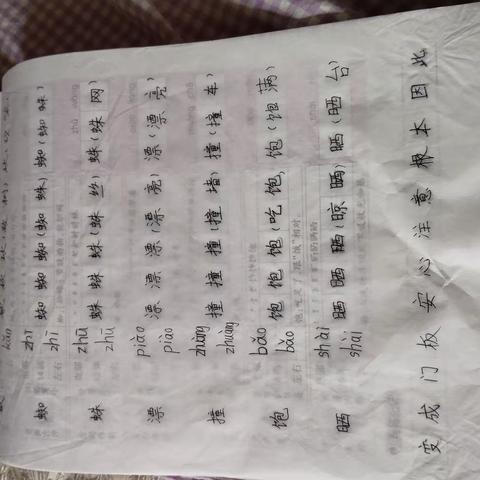 蜘 zhī zhī 蜘 蜘 蜘(蜘蛛) 蜘(蜘蛛)
蛛 zhū zhū 蛛 蛛 蛛(蛛丝) 蛛(蛛网)
漂 piào piào 漂 漂 漂(漂亮) 漂(漂亮)
撞 zhuàng zhuàng 撞 撞 撞(撞墙) 撞(撞车)
饱 bǎo bǎo 饱 饱 饱(吃饱) 饱(饱满)
晒 shài shài 晒 晒 晒(晾晒) 晒(晒台)
变成 门板 安心 注意 根本 因此